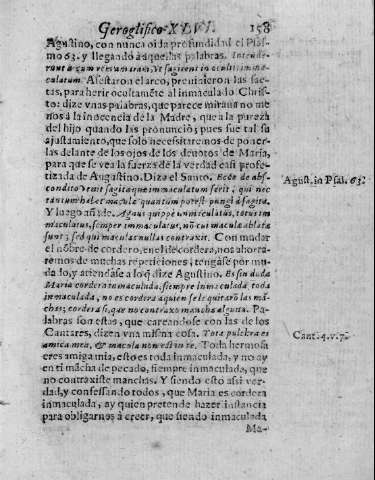 Geroglifico XLVI. 158
Agustino, con nunca oida profundidad el Psal-
mo 63. y llegando à aquellas palabras. Intende-
runt arcum rem amaram, vt sagittent in occultis imma-
culatum. Asestaron el arco, previnieron las sae-
tas, para herir ocultamẽte al inmaculado Chris-
to: dize vnas palabras, que parece miran no me
nos à la inocencia de la Madre, que a la pureza
del hijo quando las pronunciò; pues fue tal su
ajustamiento, que solo necessitaremos de poner-
las delante de los ojos de los deuotos de Maria,
para que se vea la fuerza de la verdad casi profe-
tizada de Augustino. Dize el Santo. Ecce de abs-
condito venit sagitta quæ immaculatum ferit, qui nec
tantum habet maculæ quantum potest pungi à sagitta.
Agust. in Psal. 63.
Y luego añade. Agnus quippe immaculatus, totus im
maculatus, semper immaculatus, nõ cui macula ablata
sunt; sed qui maculas nullas contraxit. Con mudar
el nõbre de cordero, en el de cordera, nos ahorra-
remos de muchas repeticiones; tengase por mu-
dado, y atiendase a lo q̃ dize Agustino. Es sin duda
Maria cordera inmaculada, siempre inmaculada, toda
inmaculada, no es cordera a quien se le quitarõ las mã-
chas; cordera si, que no contraxo mancha alguna. Pa-
labras son estas, que careandose con las de los
Cantares, dizen vna misma cosa. Tota pulchra es
amica mea, & macula non est in te. Toda hermosa
Cant. 4. v. 7.
eres amiga mia, esto es toda inmaculada, y no ay
en ti mãcha de pecado, siempre inmaculada, que
no contraxiste manchas. Y siendo esto assi ver-
dad, y confessando todos, que Maria es cordera
inmaculada, ay quien pretende hazer instancia
para obligarnos à creer, que siendo inmaculada
Ma-